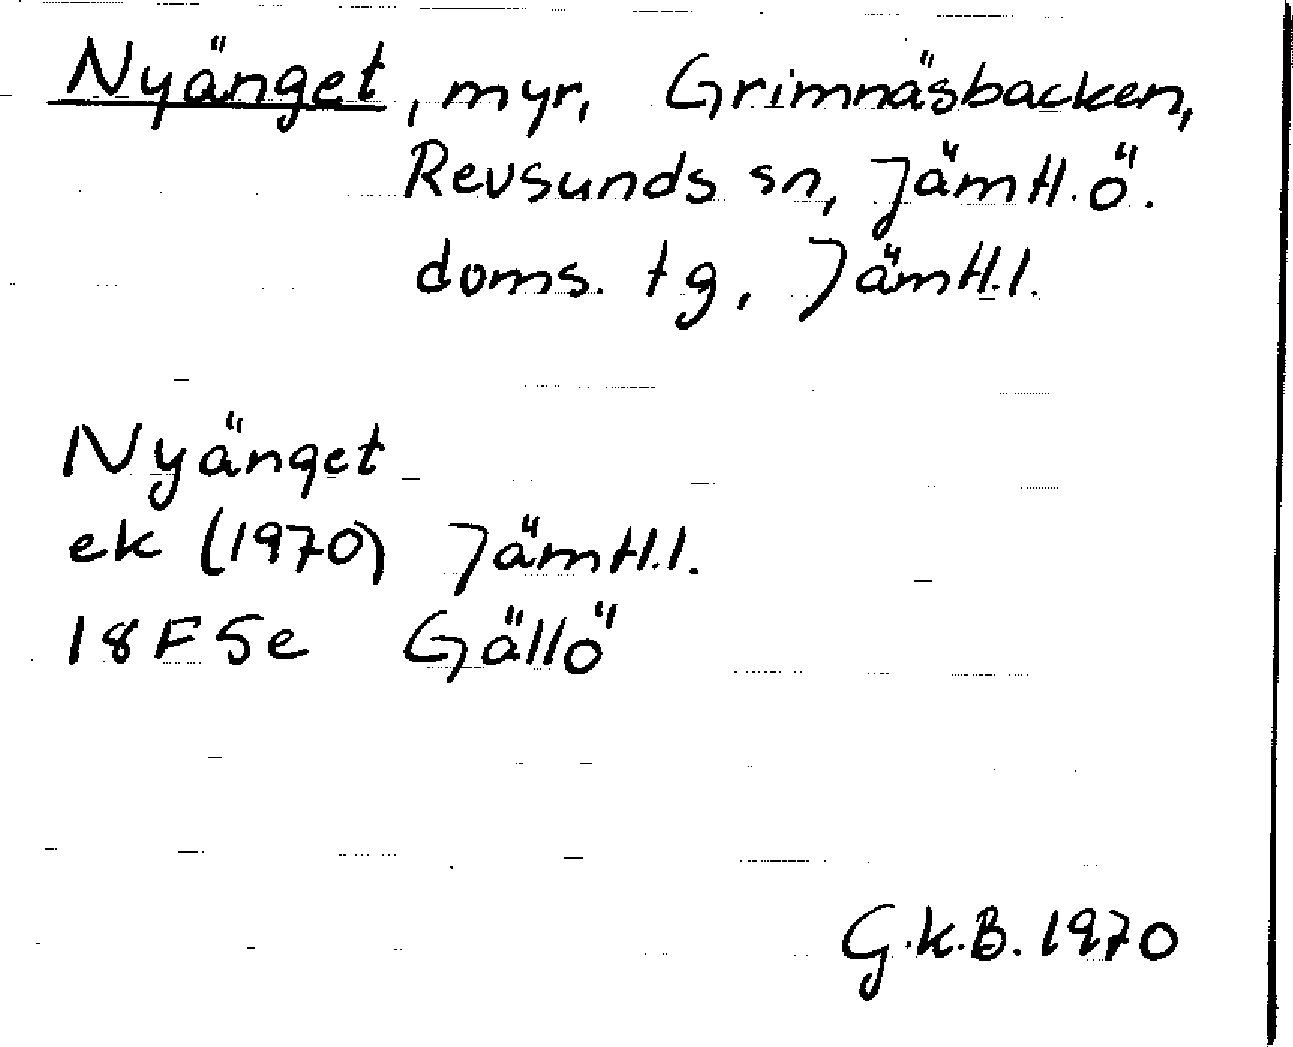 Nyänget, myr, Grimnäsbacken,
Revsunds sn, Jämtl. ö.
doms. tg, Jämtl.l.
Nyänget
ek (1970) Jämtl.l.
18F5e Gällö
G.K.B. 1970